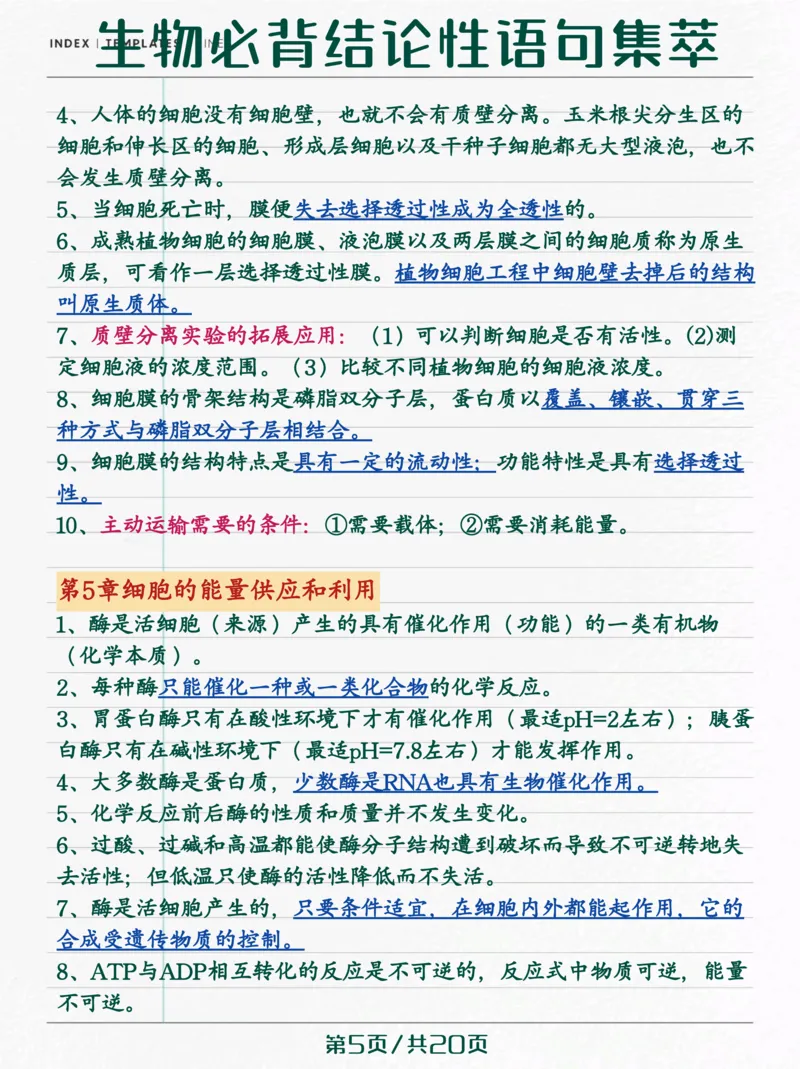 INDEX | TEMPLATES
生物必背结论性语句集萃
4、人体的细胞没有细胞壁，也就不会有质壁分离。玉米根尖分生区的
细胞和伸长区的细胞、形成层细胞以及干种子细胞都无大型液泡，也不
会发生质壁分离。
5、当细胞死亡时，膜便失去选择透过性成为全透性的。
6、成熟植物细胞的细胞膜、液泡膜以及两层膜之间的细胞质称为原生
质层，可看作一层选择透过性膜。植物细胞工程中细胞壁去掉后的结构
叫原生质体。
7、质壁分离实验的拓展应用：（1）可以判断细胞是否有活性。(2)测
定细胞液的浓度范围。（3）比较不同植物细胞的细胞液浓度。
8、细胞膜的骨架结构是磷脂双分子层，蛋白质以覆盖、镶嵌、贯穿三
种方式与磷脂双分子层相结合。
9、细胞膜的结构特点是具有一定的流动性；功能特性是具有选择透过
性。
10、主动运输需要的条件：①需要载体；②需要消耗能量。
第5章细胞的能量供应和利用
1、酶是活细胞（来源）产生的具有催化作用（功能）的一类有机物
（化学本质）。
2、每种酶只能催化一种或一类化合物的化学反应。
3、胃蛋白酶只有在酸性环境下才有催化作用（最适pH=2左右）；胰蛋
白酶只有在碱性环境下（最适pH=7.8左右）才能发挥作用。
4、大多数酶是蛋白质，少数酶是RNA也具有生物催化作用。
5、化学反应前后酶的性质和质量并不发生变化。
6、过酸、过碱和高温都能使酶分子结构遭到破坏而导致不可逆转地失
去活性；但低温只使酶的活性降低而不失活。
7、酶是活细胞产生的，只要条件适宜，在细胞内外都能起作用，它的
合成受遗传物质的控制。
8、ATP与ADP相互转化的反应是不可逆的，反应式中物质可逆，能量
不可逆。
第5页/共20页